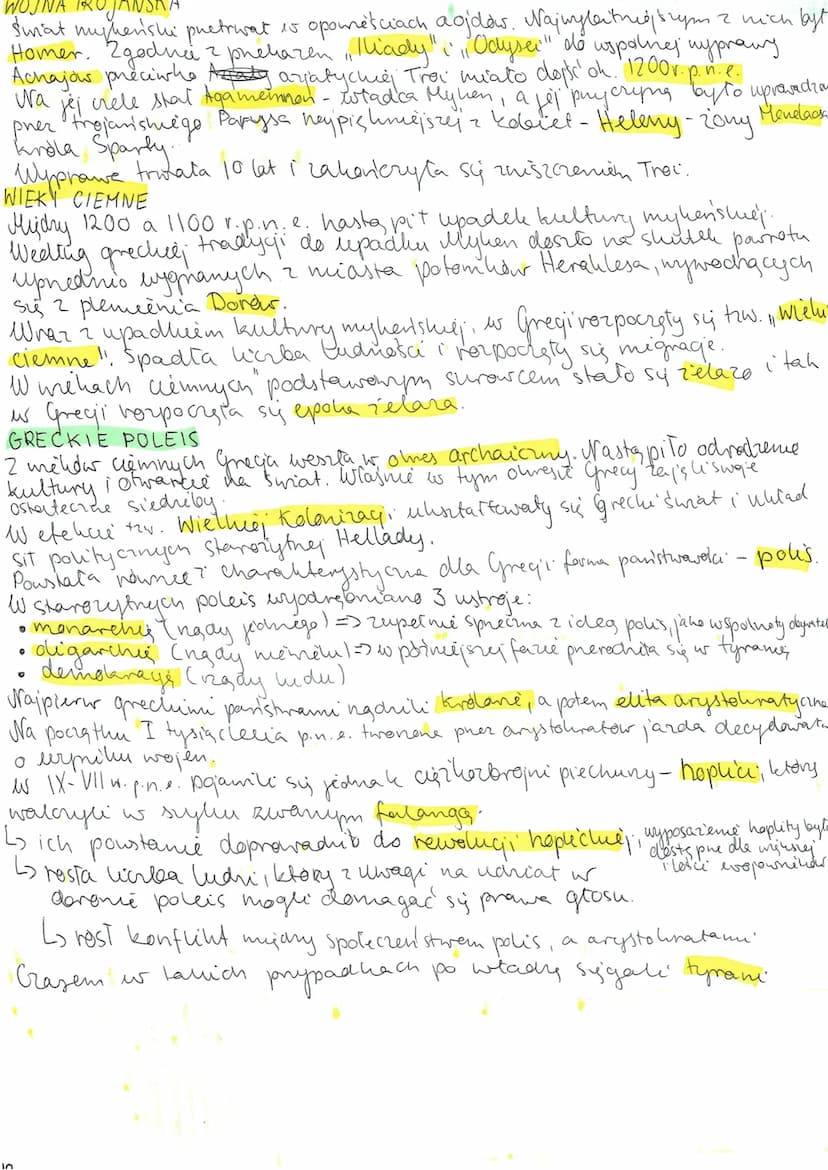 WOJNA TROJAŃSKA
Świat mykeński przetrwał w opowieściach aojdów. Najwybitniejszym z nich był
Homer. Zgodnie z przekazem „Iliady” i „Odysei” do wspólnej wyprawy
Achajów przeciwko azjatyckiej Troi miało dojść ok. 1200 r. p.n.e.
Na jej czele stał Agamemnon - władca Myken, a jej przyczyną było uprowadze
przez trojańskiego Parysa najpiękniejszej z kobiet - Heleny - żony Menelaosa
króla Sparty.
Wyprawa trwała 10 lat i zakończyła się zniszczeniem Troi.
WIEKI CIEMNE
Między 1200 a 1100 r. p.n.e. nastąpił upadek kultury mykeńskiej.
Według greckiej tradycji do upadku Myken doszło na skutek powrotu
uprzednio wygnanych z miasta potomków Heraklesa, wywodzących
się z plemienia Dorów.
Wraz z upadkiem kultury mykeńskiej, w Grecji rozpoczęły się tzw. „wieki
ciemne”. Spadła liczba ludności i rozpoczęły się migracje.
W wiekach ciemnych” podstawowym surowcem stało się żelazo i tak
w Grecji rozpoczęła się epoka żelaza.
GRECKIE POLEIS
Z wieków ciemnych Grecja weszła w okres archaiczny. Nastąpiło odrodzenie
kultury i otwarcie na świat. Właśnie w tym okresie Grecy zajęli swoje
ostateczne siedziby.
W efekcie tzw. Wielkiej Kolonizacji ukształtowały się grecki świat i układ
sił politycznych starożytnej Hellady.
Powstała również charakterystyczna dla Grecji forma państwowości - polis.
W starożytnych poleis wyodrębniano 3 ustroje:
• monarchię (rządy jednego) => zupełnie sprzeczna z ideą polis, jako wspólnoty obywatel
• oligarchię (rządy niewielu) => w późniejszej fazie przerodziła się w tyranię
• demokrację (rządy ludu)
Najpierw greckimi państwami rządzili królowie, a potem elita arystokratyczna
Na początku I tysiąclecia p.n.e. tworzona przez arystokratów jazda decydowała
o wyniku wojen.
w IX-VII w. p.n.e. pojawili się jednak ciężkozbrojni piechurzy - hoplici, którzy
walczyli w szyku zwanym falangą.
↳ ich powstanie doprowadziło do rewolucji hoplickiej, wyposażenie hoplity było
dostępne dla większej
ilości wojowników
↳ rosła liczba ludzi, którzy z uwagi na udział w
obronie poleis mogli domagać się prawa głosu.
↳ rósł konflikt między społeczeństwem polis, a arystokratami
Czasem w takich przypadkach po władzę sięgali tyrani